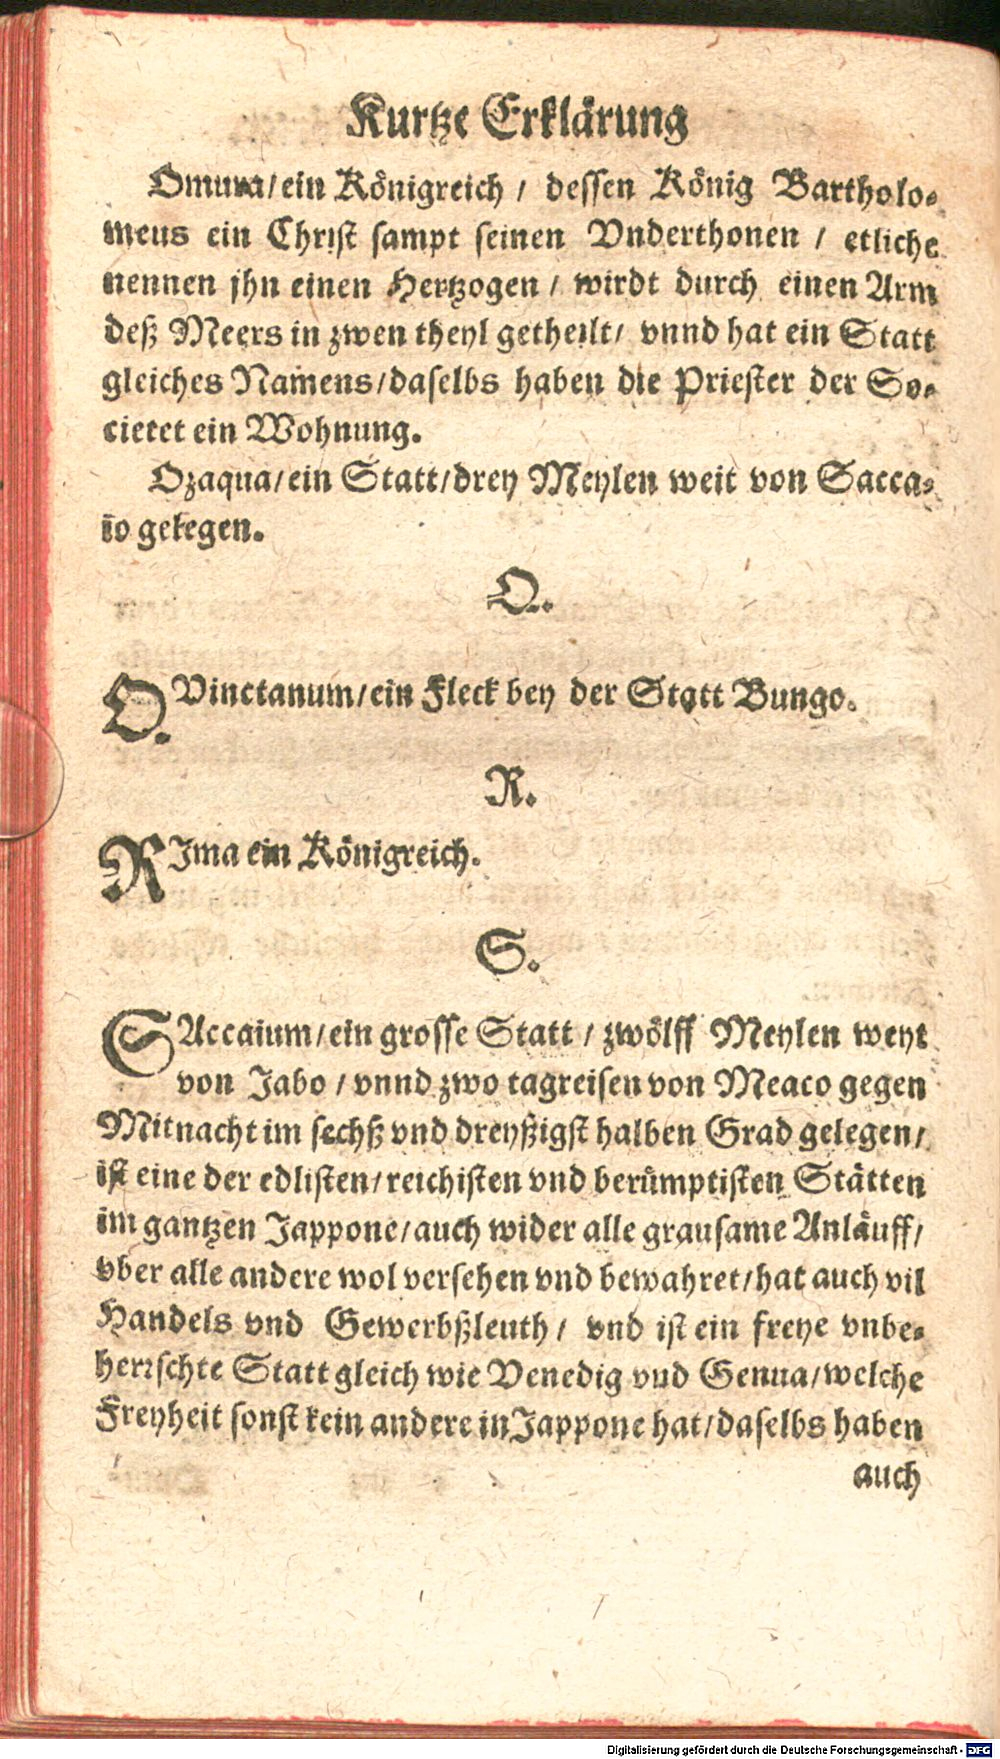 Kurtze Erklärung
Omura/ein Königreich / dessen König Bartholo-
meus ein Christ sampt seinen Vnderthonen / etliche
nennen jhn einen Hertzogen / wirdt durch einen Arm
deß Meers in zwen theyl getheilt/ vnnd hat ein Statt
gleiches Namens/daselbs haben die Priester der So-
cietet ein Wohnung.
Ozaqua/ein Statt/drey Meylen weit von Sacca-
io gelegen.
Q.
QVinctanum/ein Fleck bey der Statt Bungo.
R.
RIma ein Königreich.
S.
SAccaium/ein grosse Statt / zwölff Meylen weyt
von Jabo / vnnd zwo tagreisen von Meaco gegen
Mitnacht im sechß vnd dreyßigst halben Grad gelegen/
ist eine der edlisten/reichisten vnd berümptisten Stätten
im gantzen Jappone/auch wider alle grausame Anläuff/
vber alle andere wol versehen vnd bewahret/hat auch vil
Handels vnd Gewerbßleuth / vnd ist ein freye vnbe-
herrschte Statt gleich wie Venedig vnd Genua/welche
Freyheit sonst kein andere in Jappone hat/daselbs haben
auch
Digitalisierung gefördert durch die Deutsche Forschungsgemeinschaft - DFG